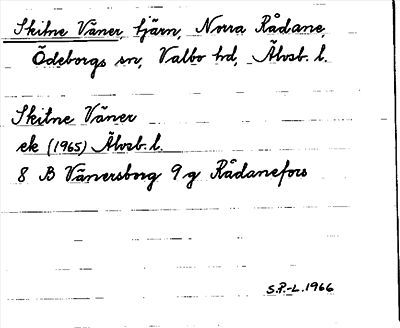 Skitne Väner, tjärn, Norra Rådane,
Ödeborgs sn, Valbo hd, Älvsb. l.
Skitne Väner
ek (1965) Älvsb. l.
8 B Vänersborg 9 g Rådanefors
S.P.-L. 1966